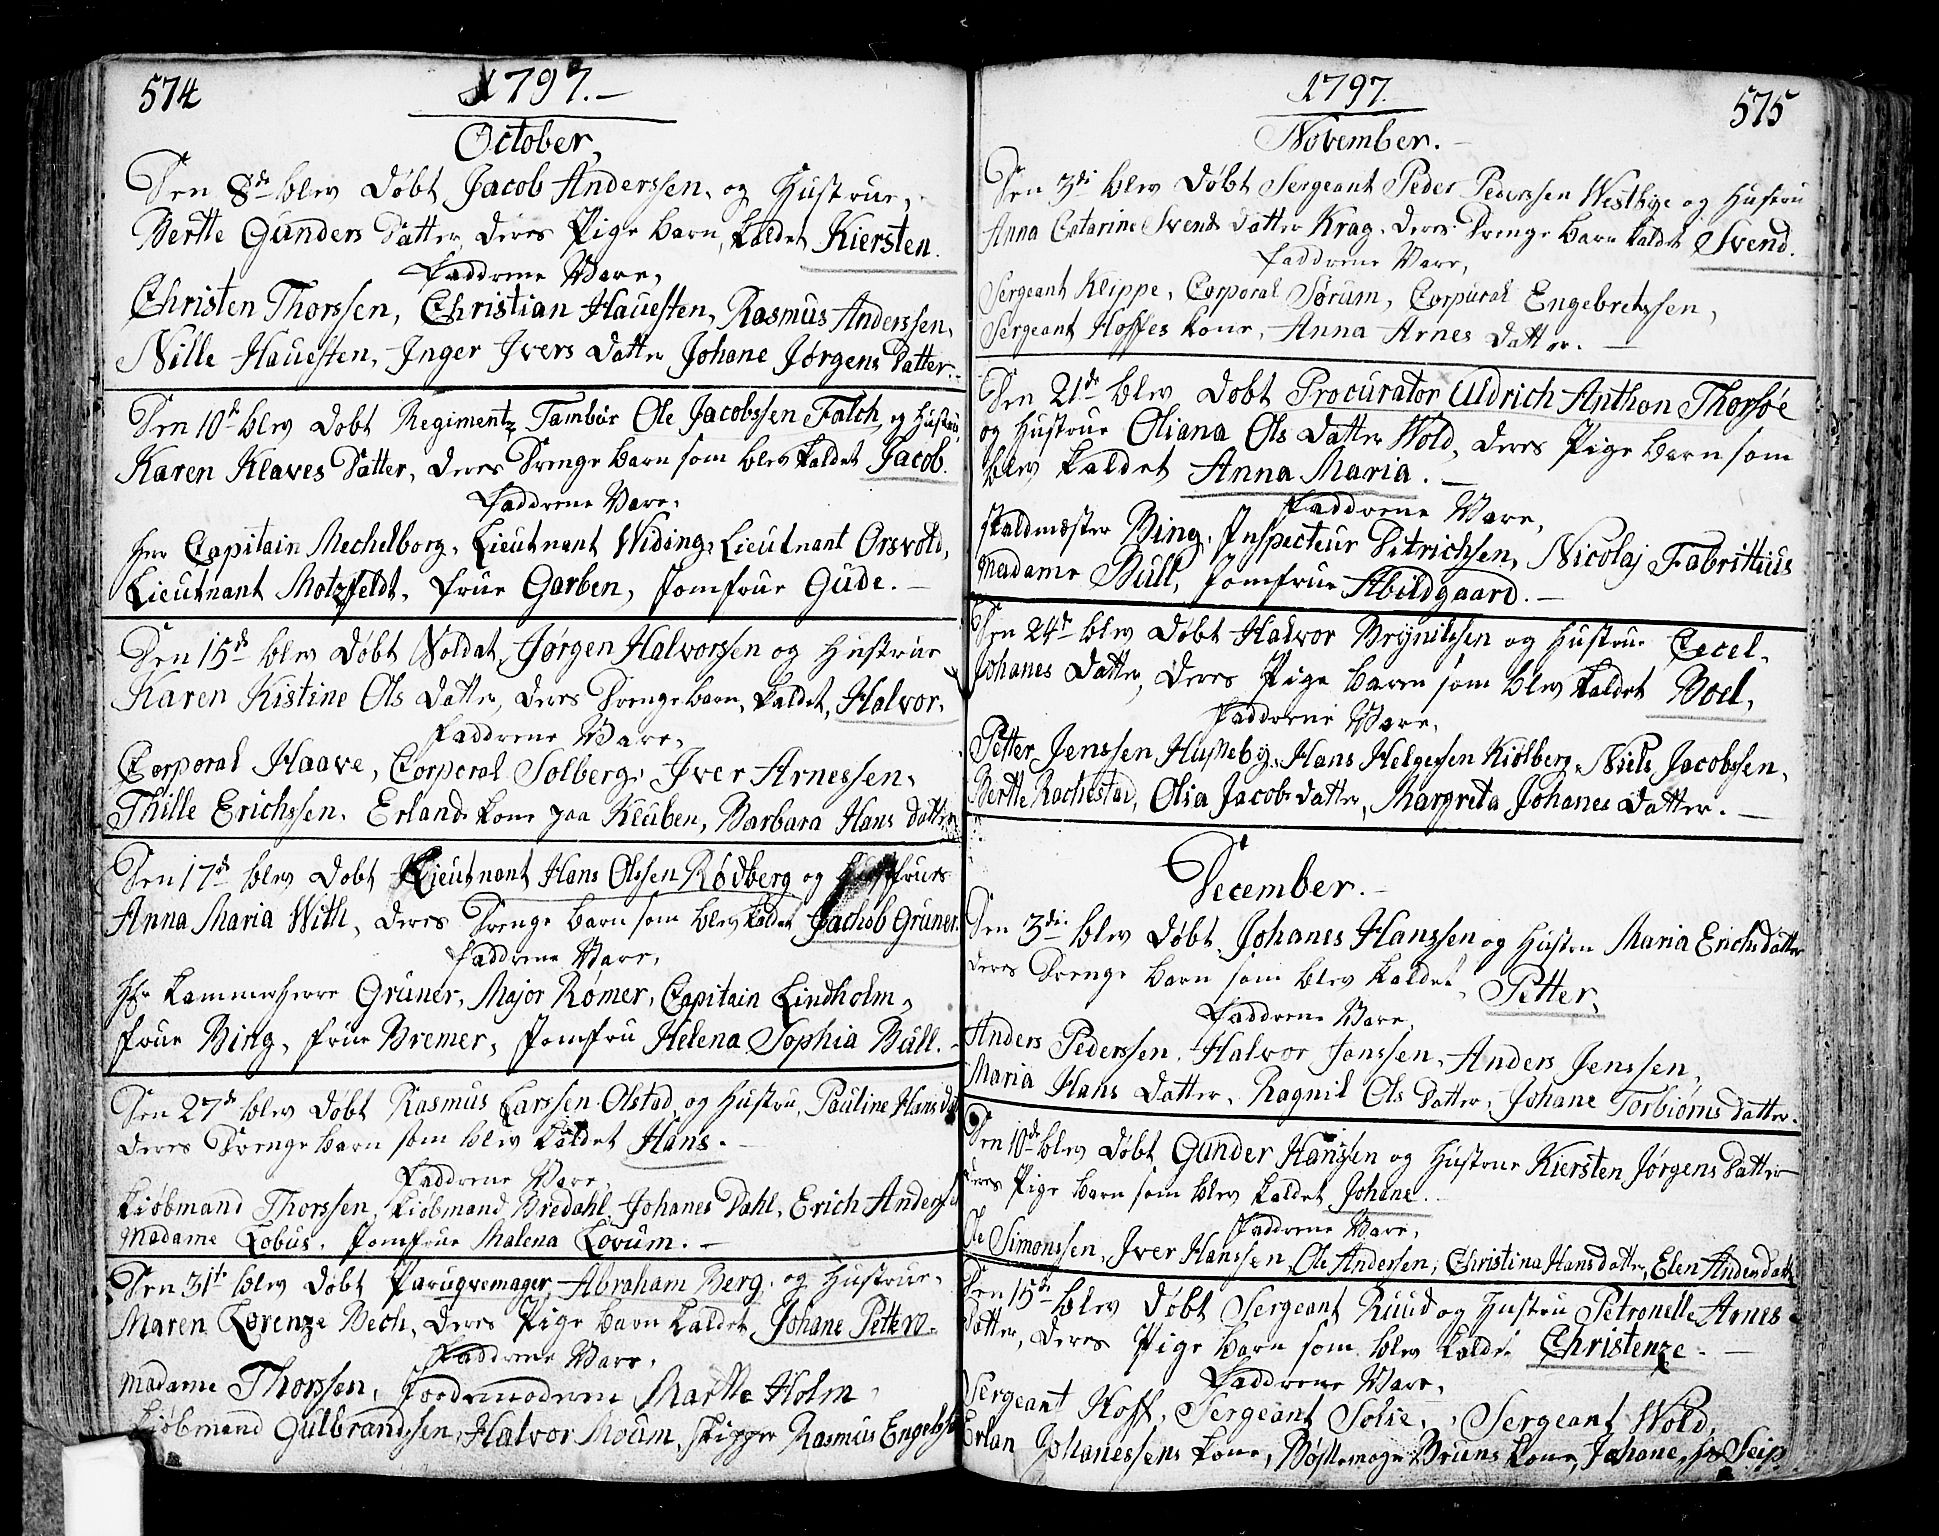 574
1797.-
October,
Den 8de blev Døbt Jacob Anderssen, og Hustrue,
Berthe Gunders Datter, Deres Pige barn, kaldet Kiersten.
Faddrene Vare,
Christen Thorssen, Christian Hauesten, Rasmus Anderssen,
Nille Hauesten, Inger Ivers Datter Johane Jørgens Datter.-
Den 10de blev Døbt Regimentz Tambur Ole Jacobssen Falch og Hustru,
Karen Klaves Datter, Deres Drenge barn som blev kaldet Jacob.
Faddrene Vare,
Herr Capitain Mechelborg, Lieutnant Widing, Lieutnant Orsvold,
Lieutnant Motzfeldt, frue Garben, Jomfrue Gude.-
Den 15de blev Døbt Soldat, Jørgen Halvorssen og Hustrue
Karen Kistine Ols Datter, Deres Drenge barn, kaldet, Halvor,
Faddrene Vare,
Corporal Haave, Corporal Solberg, Iver Arnessen,
Thille Erichssen, Erlands kone paa Kluben, Barbara Hans Datter
Den 17de blev Døbt Lieutnant Hans Olssen Rødberg og
Anna Maria With, Deres Drenge barn som blev kaldet Jachob Gruner.
Faddrene Vare,
Hr Kammerherre Grüner, Major Rømer, Capitain Lindholm,
frue Bing, frue Bremer, Jomfru Helena Sophia Bull.-
Den 27de blev Døbt Rasmus Larssen Olstad, og Hustru, Pauline Hans Dat
Deres Drenge barn som blev kaldet Hans.-
Faddrene Vare,
Kiøbmand Thorssen, kiøbmand Bredahl, Johanes Dahl, Erich Anderssen
Madame Lobus, Jomfrue Malena Lovum.-
Den 31te blev Døbt Parugvemager, Abraham Berg, og Hustrue,
Maren Lorenze Bech, Deres Pige barn kaldet, Johane Petter.
Faddrene Vare,
Madame Thorssen, Jordemoderen Marthe Holm,
Kiøbmand Gulbrandssen, Halvor Moum, skipper Rasmus Engelssen
1797.
575
November.-
Den 3di blev Døbt Sergeant Peder Pederssen Westbye og Hustru
Anna Catarine Svends Datter Krag, Deres Drenge barn kaldet Svend.
Faddrene Vare,
Sergeant Klippe, Corporal Sørum, Corpural Engebretssen,
Sergeant Hoffes kone, Anna Arnes Datter.-
Den 21de blev Døbt Procurator Uldrich Anthon Thorsøe
og Hustrue Oliana Ols Datter Wold, Deres Pige barn som
blev kaldet Anna Maria.-
Faddrene Vare,
Staldmester Bing, Inspecteur Ditrichsen, Nicolaj Fabrittius
Madame Bull, Jomfrue Abildgaard.-
Den 24de blev Døbt Halvor Brynilssen og Hustrue Cecel,
Johanes Datter, Deres Pige baren som blev kaldet Boel,
Faddrene Vare,
Petter Jenssen Husseby, Hans Helgessen Kiølberg, Niels Jacobssen,
Berthe Rachestad, Olia Jacobs Datter, Margreta Johanes Datter.-
December.-
Den 3die blev Døbt Johanes Hanssen og Hustru Maria Erichs Datter
Deres Drenge barn som blev kaldet, Petter,
Faddrene Vare,
Anders Pederssen, Halvor Jonssen, Anders Jenssen,
Maria Hans Datter, Ragnil Ols Datter, Johane Torbiørns Datter.
Den 10de blev Døbt Gunder Hanssen og Hustrue Kiersten Jørgens Datter
Deres Pige barn som blev kaldet Johane.-
Faddrene Vare,
Ole Simonssen, Iver Hanssen, Ole Anderssen, Christina Hans Datter, Elen Anders Datt
Den 15de blev Døbt Sergeant Ruud og Hustru Petronelle Arnes
Datter, Deres Pige barn som blev kaldt Christenze.-
Faddrene Vare,
Sergeant Hoff, Sergeant Solie, Sergeant Wold,
Erlan Johanessens kone, Bøssemager Bruns kone, Johane Seip